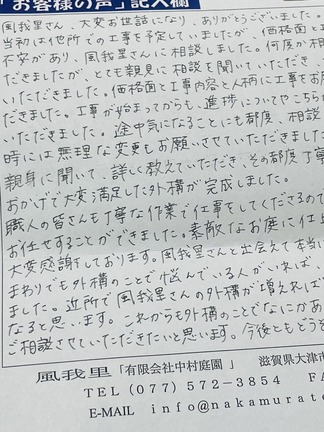 「お客様の声」記入欄
風我里さん、大変お世話になり、ありがとうございました。
当初は他所での工事を予定していましたが、価格面と工
不安があり、風我里さんに相談しました。何度か相
だきましたが、とても親身に相談を聞いていただき
いただきました。価格面と工事内容と人柄に工事をお
だきました。工事が始まってからも、進捗についてやこちらか
いただきました。途中気になることにも都度、相談
時には無理な変更もお願いさせていただきました
親身に聞いて、詳しく教えていただき、その都度丁寧
おかげで大変満足した外構が完成しました。
職人の皆さんも丁寧な作業で仕事をしてくださるので
お任せすることができました。素敵なお庭に仕上
大変感謝しております。風我里さんと出会えて本当に
まわりでも外構のことで悩んでいる人がいれば、
ました。近所で風我里さんの外構が増えれば
なると思います。これからも外構のことでなにかあ
ご相談させていただきたいと思います。今後ともどう
風我里「有限会社中村庭園」 滋賀県大津市
TEL (077) 572-3854 FA
E-MAIL info@nakamurat